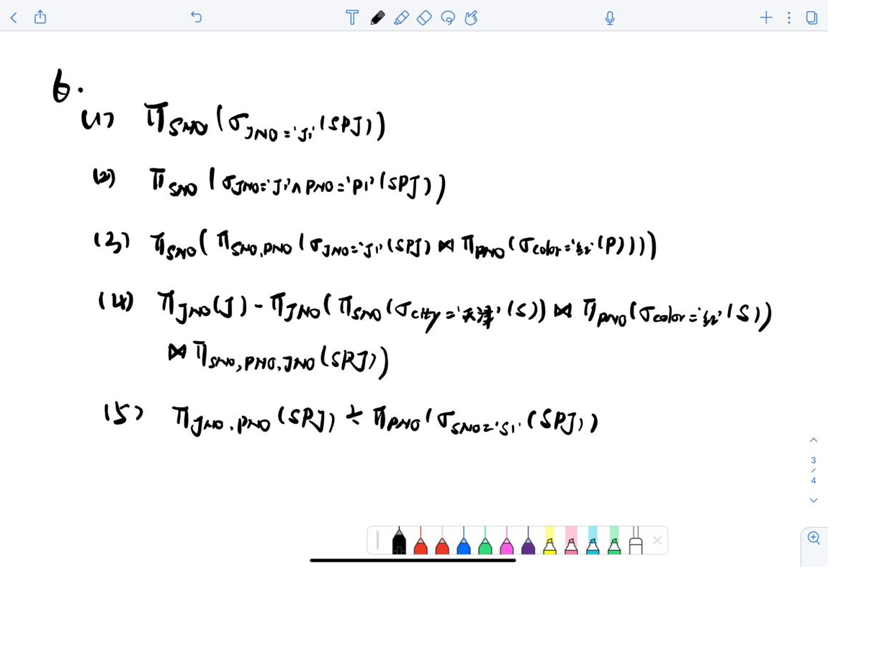 6.
(1) π_SNO(σ_JNO='J1'(SPJ))
(2) π_SNO(σ_JNO='J1'∧PNO='P1'(SPJ))
(3) π_SNO(π_SNO,PNO(σ_JNO='J1'(SPJ)⋈π_PNO(σ_color='红'(P))))
(4) π_JNO(J)-π_JNO(π_SNO(σ_city='天津'(S))⋈π_PNO(σ_color='红'(S))
⋈π_SNO,PNO,JNO(SPJ))
(5) π_JNO,PNO(SPJ)÷π_PNO(σ_SNO='S1'(SPJ))
3
/
4